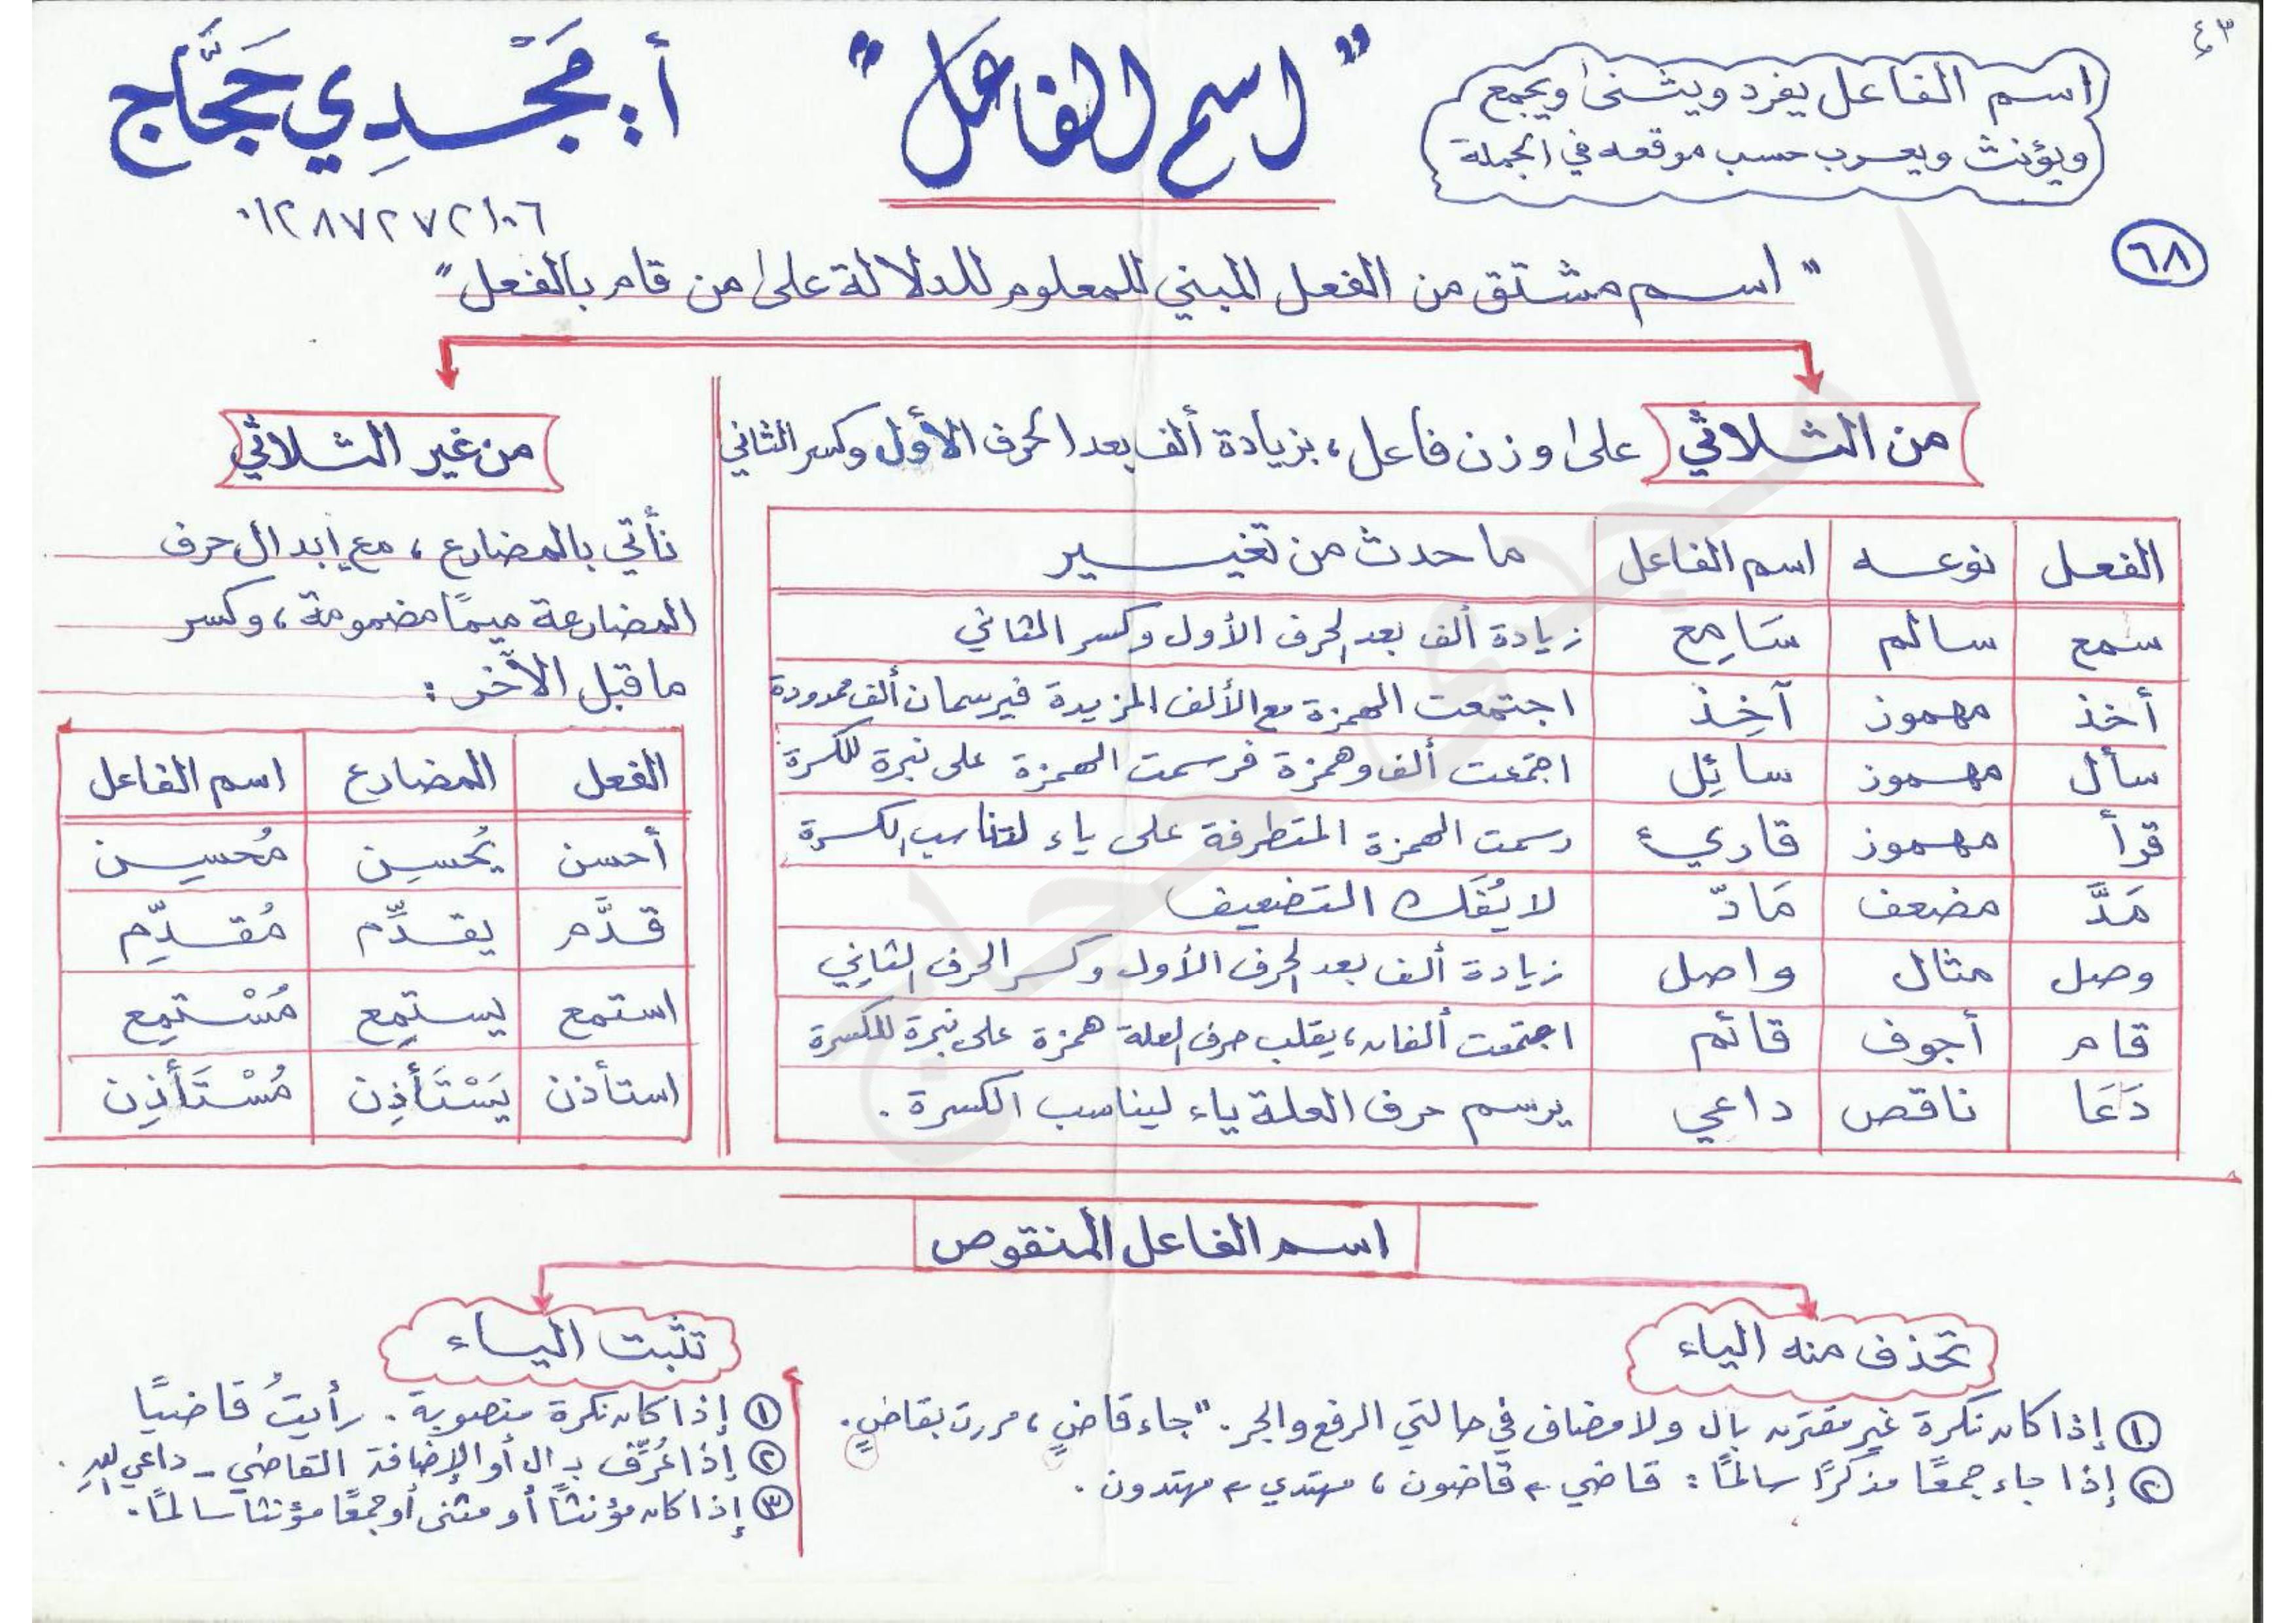 ٤٣
اسم الفاعل يفرد ويثنى ويجمع
ويؤنث ويعرب حسب موقعه في الجملة
"اسم الفاعل"
أ: مَجْدِي حَجَّاج
٠١٢٨٧٢٧٢١٠٦
٦٨
"اسم مشتق من الفعل المبني للمعلوم للدلالة على من قام بالفعل"
من الثلاثي على وزن فاعل، بزيادة ألف بعد الحرف الأول وكسر الثاني
الفعل نوعه اسم الفاعل ما حدث من تغيير
سمع سالم سَامِع زيادة ألف بعد الحرف الأول وكسر الثاني
أخذ مهموز آخِذ اجتمعت الهمزة مع الألف المزيدة فيرسمان ألف ممدودة
سأل مهموز سائِل اجتمعت ألف وهمزة فرسمت الهمزة على نبرة للكسرة
قرأ مهموز قارئ رسمت الهمزة المتطرفة على ياء لتناسب الكسرة
مَدَّ مضعف مَادّ لا يُفَك التضعيف
وصل مثال واصل زيادة ألف بعد الحرف الأول وكسر الحرف الثاني
قام أجوف قائم اجتمعت ألفان، يقلب حرف العلة همزة على نبرة للكسرة
دَعَا ناقص داعي يرسم حرف العلة ياء ليناسب الكسرة .
من غير الثلاثي
نأتي بالمضارع، مع إبدال حرف
المضارعة ميمًا مضمومة، وكسر
ما قبل الآخر :
الفعل المضارع اسم الفاعل
أحسن يُحسِن مُحسِن
قدَّم يقدِّم مُقدِّم
استمع يستمِع مُسْتمِع
استأذن يَسْتَأذِن مُسْتَأذِن
اسم الفاعل المنقوص
تحذف منه الياء
① إذا كان نكرة غير مقترن بال ولا مضاف في حالتي الرفع والجر. "جاء قاضٍ، مررت بقاضٍ.
② إذا جاء جمعًا مذكرًا سالمًا : قاضي ← قاضون، مهتدي ← مهتدون .
تثبت الياء
① إذا كان نكرة منصوبة. رأيتُ قاضيًا
② إذا عُرِّف بـ ال أو الإضافة القاضي - داعي الله .
③ إذا كان مؤنثًا أو مثنى أو جمعًا مؤنثا سالمًا.